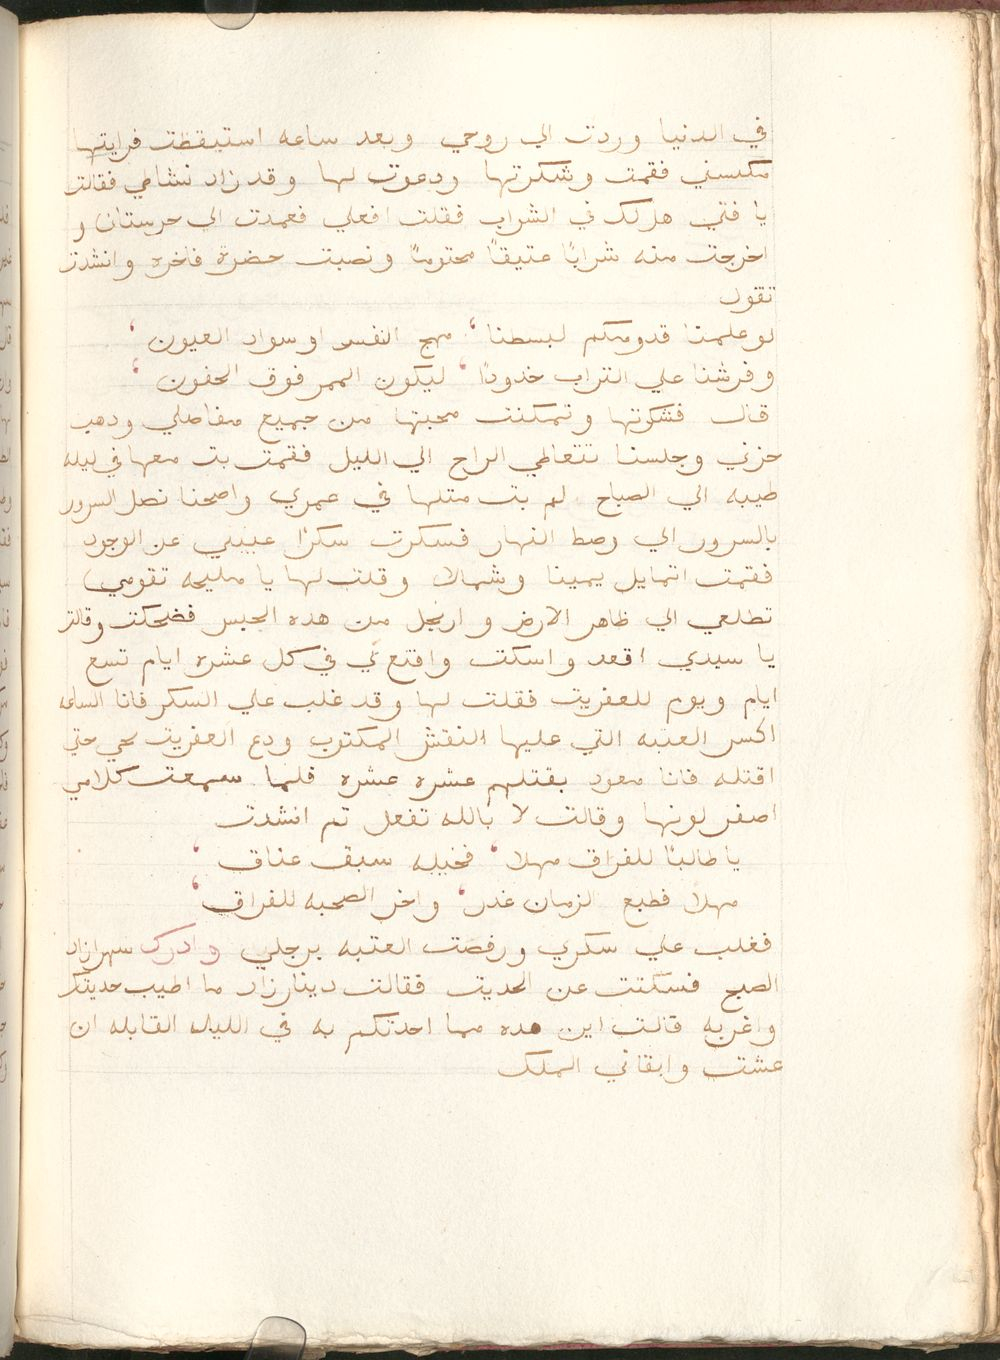 في الدنيا وردت الي روحي وبعد ساعه استيقظت فرايتها
مكبسني فقمت وشكرتها ودعوت لها وقد زاد نشاطي فقالت
يا فتي هل لك في الشراب فقلت افعلي فعمدت الي خرستان و
اخرجت منه شرابًا عتيقًا مختومًا ونصبت حضرة فاخره وانشدت
تقول
لو علمنا قدومكم لبسطنا ، مهج النفس او سواد العيون ،
وفرشنا علي التراب خدودًا ، ليكون الممر فوق الجفون ،
قال فشكرتها وتمكنت محبتها من جميع مفاصلي ودهب
حزني وجلسنا نتعاطي الراح الي الليل فقمت بت معها في ليله
طيبه الي الصباح لم بت متلها في عمري واصبحنا نصل السرور
بالسرور الي وصط النهار فسكرت سكرًا غيبني عن الوجود
فقمت اتمايل يمينا وشمالا وقلت لها يا مليحه تقومي
تطلعي الي ظاهر الارض وارتجل من هده الحبس فضحكت وقالت
يا سيدي اقعد واسكت واقنع لي في كل عشره ايام تسع
ايام ويوم للعفريت فقلت لها وقد غلب علي السكر فانا الساعه
اكسر العتبه التي عليها النقش المكتوب ودع العفريت يجي حتي
اقتله فانا معود بقتلهم عشره عشره فلما سمعت كلامي
اصفر لونها وقالت لا بالله تفعل تم انشدت
يا طالبًا للفراق مهلا ، فخيله سبق عتاق ،
مهلا فطبع الزمان غدر ، واخر الصحبه للفراق ،
فغلب علي سكري ورفصت العتبه برجلي وادرك شهرازاد
الصبح فسكتت عن الحديت فقالت دينارزاد ما اطيب حديتك
واغربه قالت اين هده مما احدتكم به في الليله القابله ان
عشت وابقاني الملك